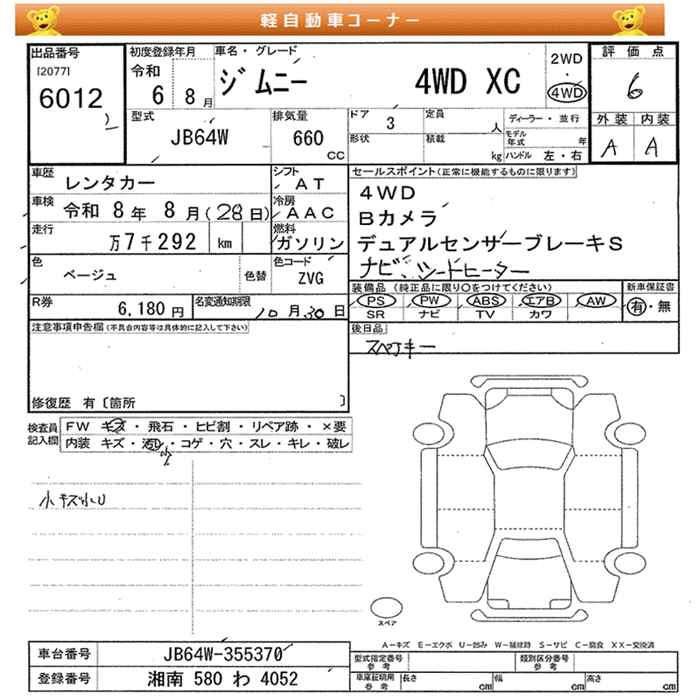 軽自動車コーナー
出品番号
[2077]
6012
2
初度登録年月
令和
6 8月
車名・グレード
ジムニー 4WD XC
2WD
・
4WD
評価点
6
外装 内装
A A
型式
JB64W
排気量
660
CC
ドア 3
形状
定員 人
積載 kg
ディーラー・並行
モデル年式 年
ハンドル 左・右
車歴 レンタカー
シフト AT
車検 令和 8年 8月(28日)
冷房 AAC
走行 万7千292 km
燃料 ガソリン
色 ベージュ 色替
色コード ZVG
R券 6,180円
名変通知期限 10月30日
セールスポイント(正常に機能するものに限ります)
4WD
Bカメラ
デュアルセンサーブレーキS
ナビ、シートヒーター
装備品(純正品に限り○をつけてください)
PS PW ABS エアB AW
SR ナビ TV カワ
新車保証書
有・無
後日品
スペアキー
注意事項申告欄(不具合内容等は具体的に記入して下さい)
修復歴 有〔箇所 〕
検査員記入欄
FW キズ・飛石・ヒビ割・リペア跡・×要
内装 キズ・汚レ・コゲ・穴・スレ・キレ・破レ
小
小キズ小U
スペア
A-キズ E-エクボ U-凹み W-補修跡 S-サビ C-腐食 XX-交換済
車台番号 JB64W-355370
登録番号 湘南 580 わ 4052
型式指定番号 参考
類別区分番号 参考
車庫証明用 参考
長さ cm
幅 cm
高さ cm